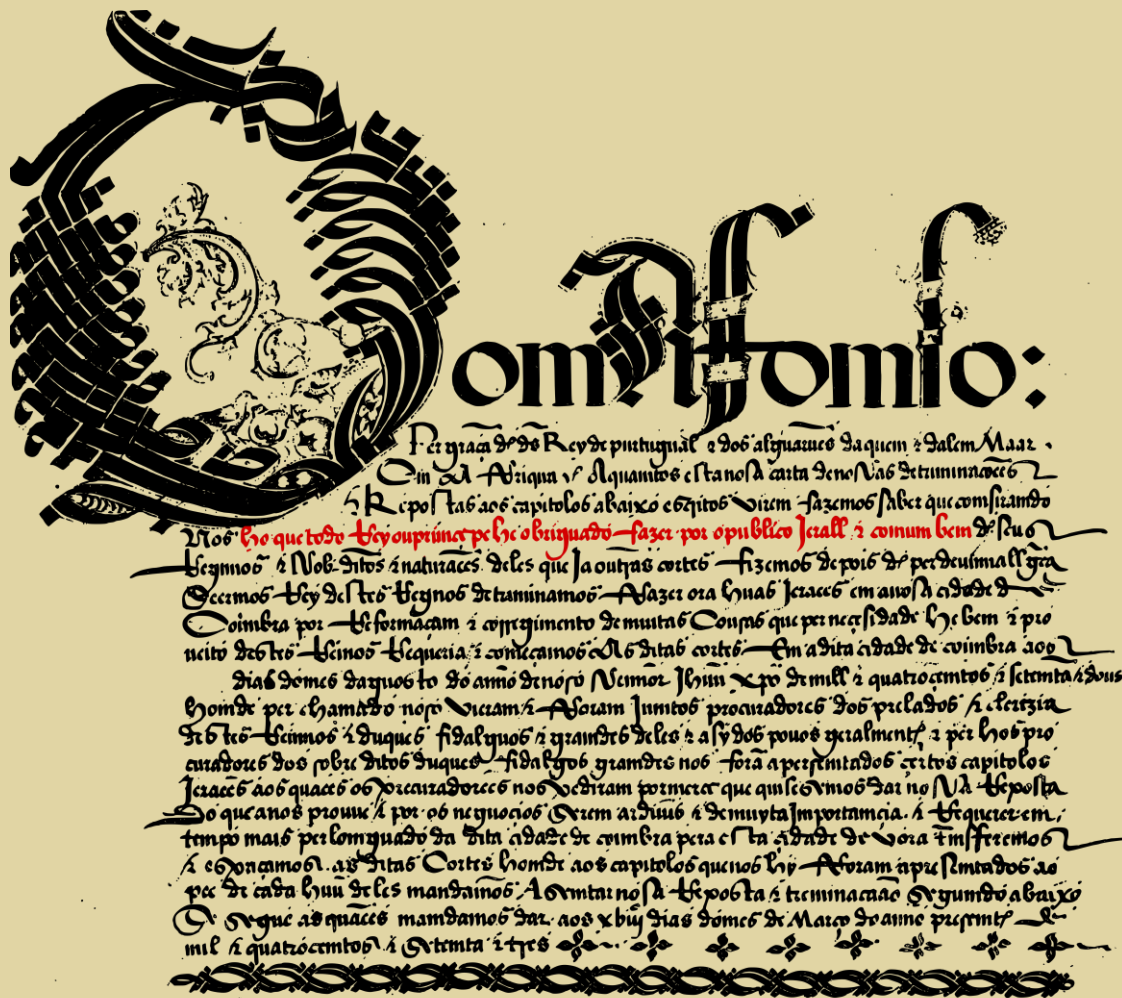 Dom Affomso:
Per graça de ds Rey de purtugual e dos alguarues daquem e dalem Maar.
Em Affriqua A quamtos esta nosa carta de nosas detriminaçõees
e Repostas aos capitolos abaixo escritos virem fazemos saber que comsirando
Nos ho que todo Rey ou primcepe he obriguado fazer por o publico Jerall e comum bem de seus
Regnnos e sobditos e naturaees deles que Ja outras cortes fizemos depois de per deuinall gra
Seermos Rey destes Regnos detriminamos ffazer ora huas Jeraees em a nosa cidade de
Coimbra por Reformaçam e corregimento de muitas Cousas que per necesidade he bem e pro
ueito destes Reinos Requeria e começamos As ditas cortes Em a dita cidade de coimbra aos
dias do mes daguosto do anno de noso Senhor Jhuu xpo de mill e quatrocemtos e setemta e dous
homde per chamado noso vieram e fforam Jumtos procuradores dos prelados e clerizia
destes Reinnos e duques fidalguos e gramdes deles e asy dos pouos geralmente e per hos pro
curadores dos sobre ditos duques fidalgos gramdes nos forã apersemtados certos capitolos
Jeraees aos quaees os procuradorees nos pediram por merce que quisesemos dar nosa Reposta
Do que a nos prouue e por os neguocios Serem arduus e de muyta Importamcia. e Requerer em.
tempo mais perlomguado da dita cidade de coimbra pera esta cidade de Vora tmsfferemos
e espaçamos as ditas Cortes homde aos capitolos que nos hy fforam apresemtados ao
pee de cada huu deles mandamos Asemtar nosa Reposta e treminaçaão Segumdo abaixo
Se segue as quaees mamdamos dar aos xbiij dias do mes de Março do anno presemte de
mil e quatrocemtos e Setemta e tres